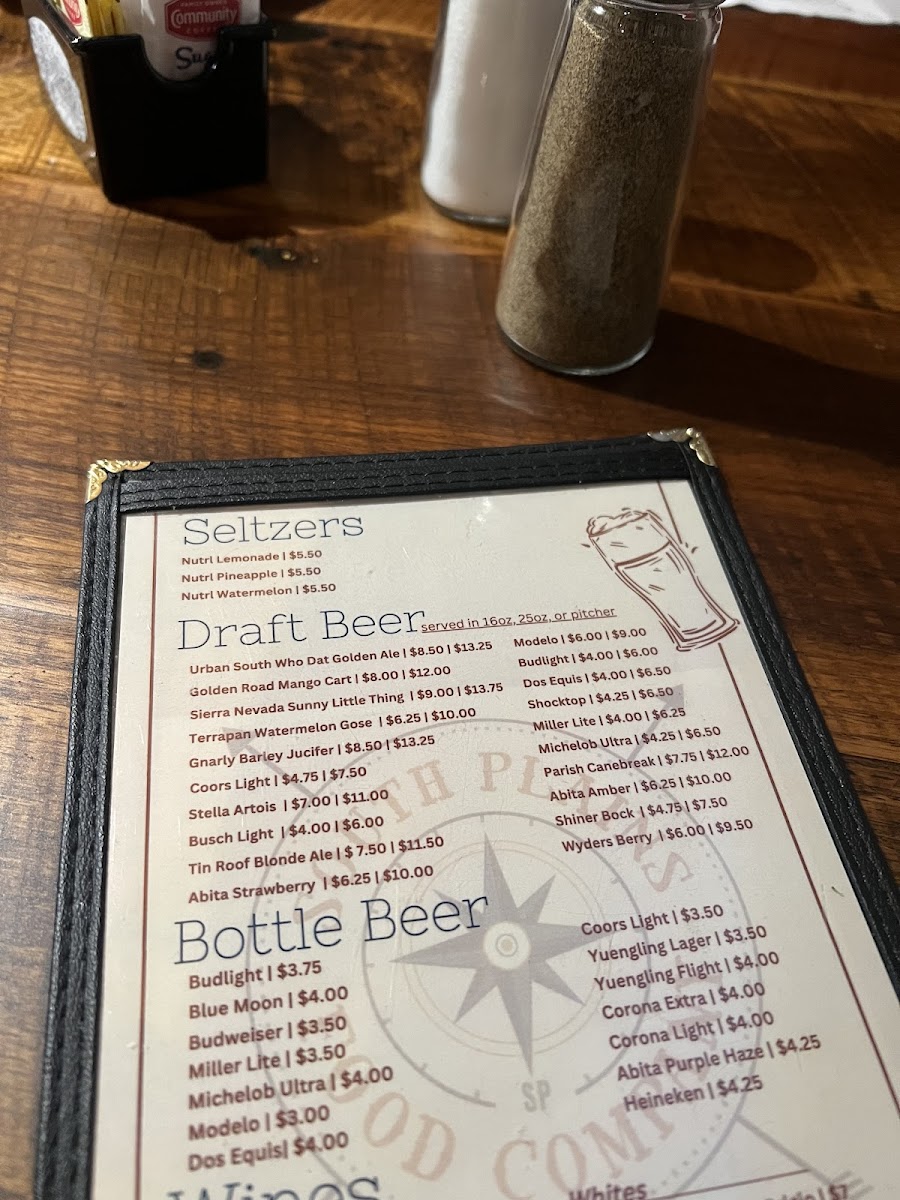 Community
COFFEE
Seltzers
Nutrl Lemonade | $5.50
Nutrl Pineapple | $5.50
Nutrl Watermelon | $5.50
Draft Beer served in 16oz, 25oz, or pitcher
Urban South Who Dat Golden Ale | $8.50 | $13.25
Golden Road Mango Cart | $8.00 | $12.00
Sierra Nevada Sunny Little Thing | $9.00 | $13.75
Terrapan Watermelon Gose | $6.25 | $10.00
Gnarly Barley Jucifer | $8.50 | $13.25
Coors Light | $4.75 | $7.50
Stella Artois | $7.00 | $11.00
Busch Light | $4.00 | $6.00
Tin Roof Blonde Ale | $ 7.50 | $11.50
Abita Strawberry | $6.25 | $10.00
Modelo | $6.00 | $9.00
Budlight | $4.00 | $6.00
Dos Equis | $4.00 | $6.50
Shocktop | $4.25 | $6.50
Miller Lite | $4.00 | $6.25
Michelob Ultra | $4.25 | $6.50
Parish Canebreak | $7.75 | $12.00
Abita Amber | $6.25 | $10.00
Shiner Bock | $4.75 | $7.50
Wyders Berry | $6.00 | $9.50
Bottle Beer
Budlight | $3.75
Blue Moon | $4.00
Budweiser | $3.50
Miller Lite | $3.50
Michelob Ultra | $4.00
Modelo | $3.00
Dos Equis| $4.00
Coors Light | $3.50
Yuengling Lager | $3.50
Yuengling Flight | $4.00
Corona Extra | $4.00
Corona Light | $4.00
Abita Purple Haze | $4.25
Heineken | $4.25
SOUTH PLAINS
FOOD COMPANY
SP
Wines
Whites